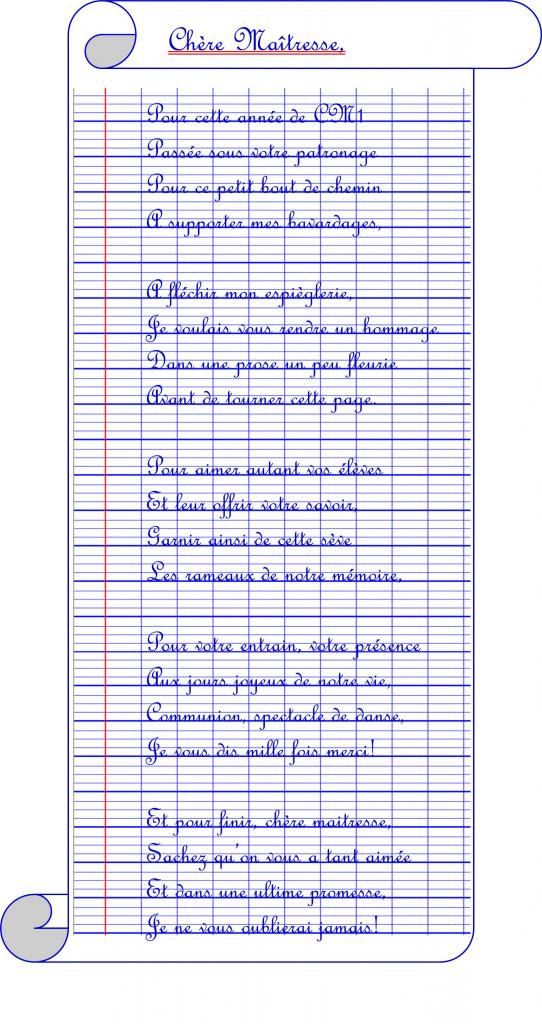 Chère Maîtresse,
Pour cette année de CM1
Passée sous votre patronage
Pour ce petit bout de chemin
A supporter mes bavardages,
A fléchir mon espièglerie,
Je voulais vous rendre un hommage
Dans une prose un peu fleurie
Avant de tourner cette page.
Pour aimer autant vos élèves
Et leur offrir votre savoir,
Garnir ainsi de cette sève
Les rameaux de notre mémoire,
Pour votre entrain, votre présence
Aux jours joyeux de notre vie,
Communion, spectacle de danse,
Je vous dis mille fois merci!
Et pour finir, chère maitresse,
Sachez qu'on vous a tant aimée
Et dans une ultime promesse,
Je ne vous oublierai jamais!